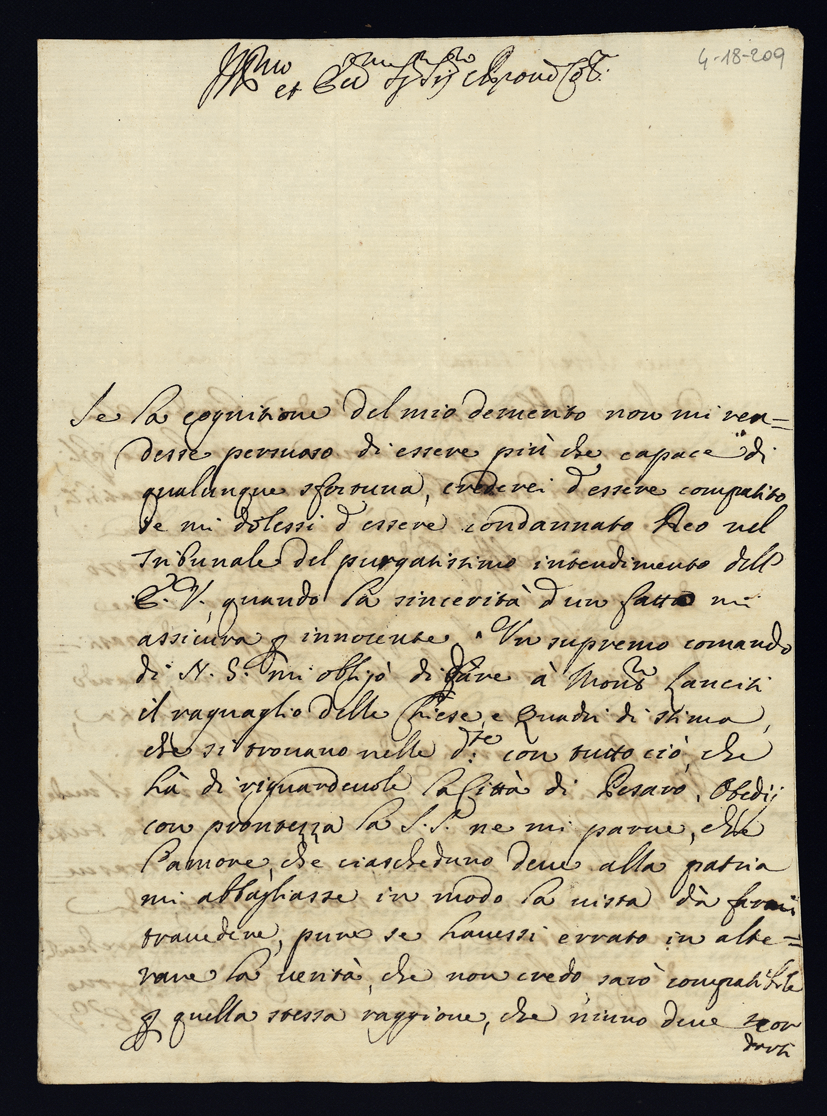 4-18-209
Ill.mo et Ecc.mo
Se la cognitione del mio demerito non mi ren=
desse persuaso di essere più che capace di
qualunque sfortuna, crederei d'essere compatito
se mi dolessi d'essere condannato Reo nel
Tribunale del purgatissimo intendimento dell'
E. V., quando la sincerità d'un fatto mi
assicura p innocente. Un supremo comando
di N. S. mi obligò di dare à Mons.r Lancisi
il raguaglio delle Chiese, e Quadri di stima,
che si trouano nelle d.te con tutto ciò, che
hà di riguardeuole la Città di Pesaro, Obedij
con prontezza la S. S. ne mi parue, che
l'amore, che ciascheduno deue alla patria
mi abbagliasse in modo la uista dà farmi
trauedere, pure se hauessi errato in alte=
rare la uerità, che non credo sarò compatibile
p quella stessa raggione, che niuno deue